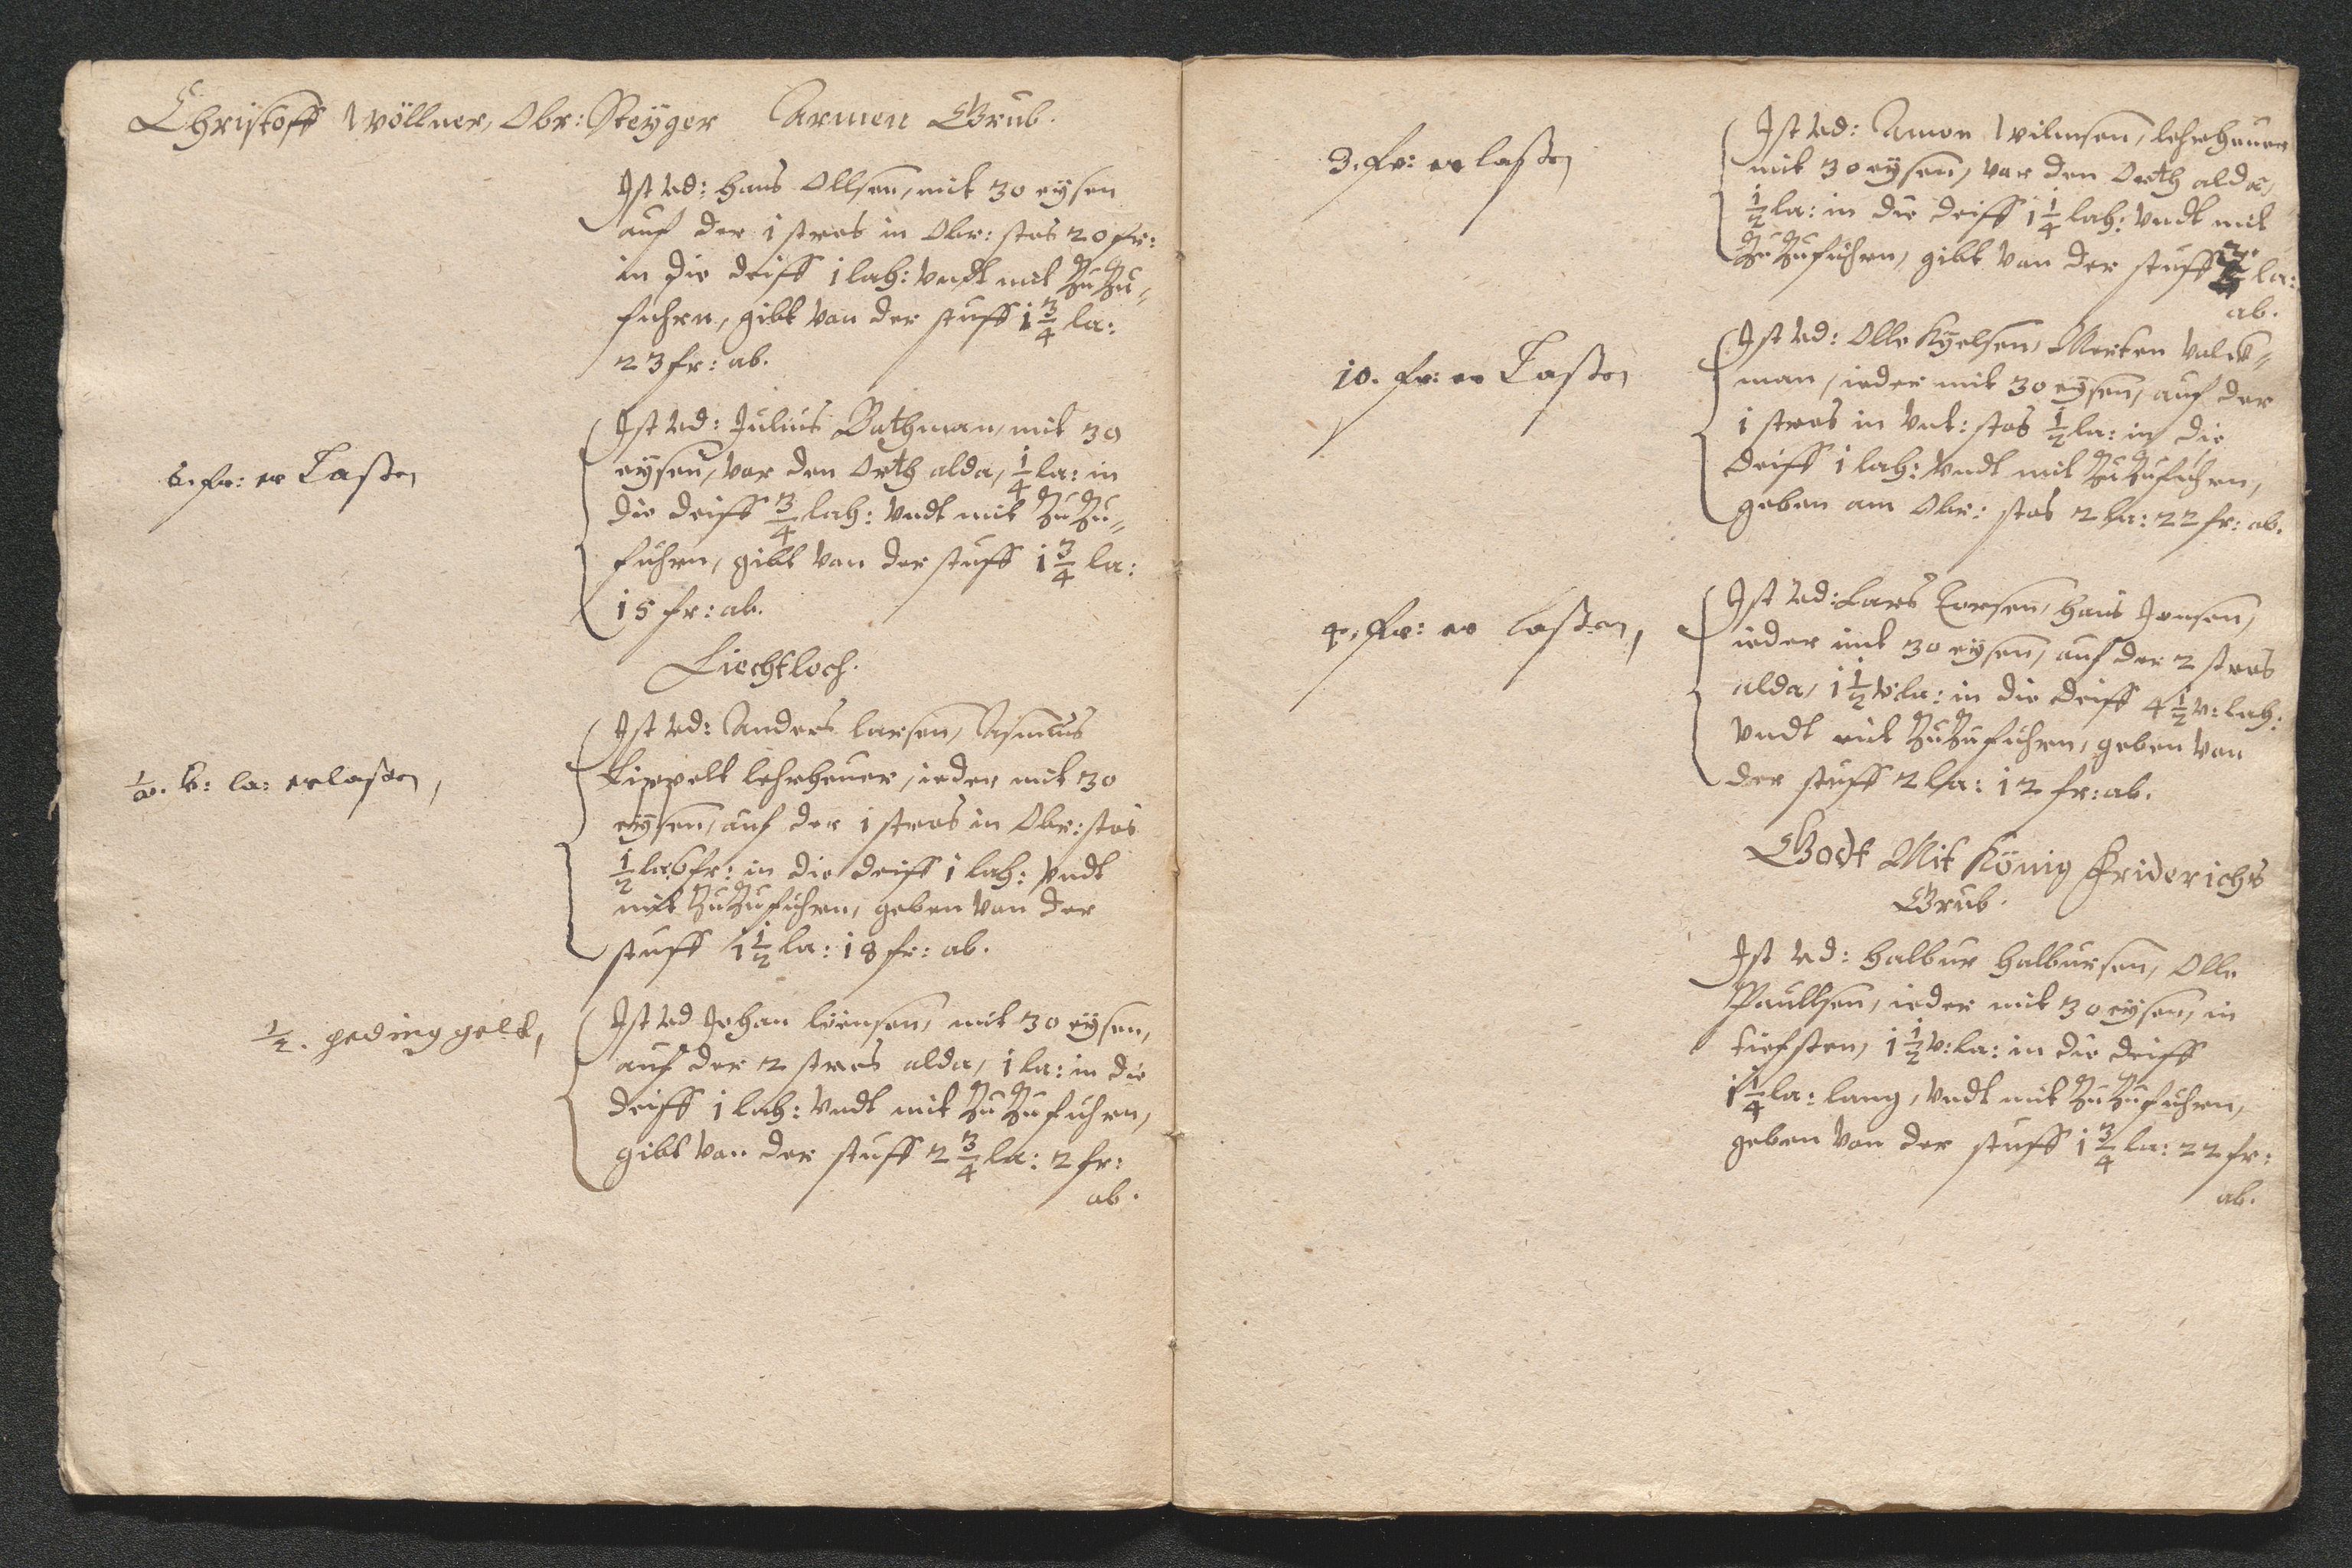 Christoff Wöllner, Obr: Steÿger Armen Grub.
Ist vd: Hans Ollsen, mit 30 eÿsen
auf der 1 stros in Obr: stos 20 fr:
in die deiff 1 lah: vndt mit Zu Zu„
fuhren, gibt von der stuff 1 3/4 la:
23 fr: ab.
6. fr: er Laßen
Ist vd: Julius Bathman, mit 30
eÿsen, vor den Orth alda, 1/4 la: in
die deiff 3/4 lah: vndt mit Zu Zu„
fuhren, gibt von der stuff 1 3/4 la:
15 fr: ab.
Liechtloch.
1/2. v: la: erlaßen,
Ist vd: Anders Larsen, Asmus
Lippelt lehrheuer, ieder mit 30
eÿsen, auf der 1 stros in Obr: stos
1/2 la: 6 fr: in die deiff 1 lah: vndt
mit Zu Zufuhren, geben von der
stuff 1 1/2 la: 18 fr: ab.
1/2. geding gelt,
Ist vd Johan mit 30 eÿsen,
auf der 2 stros alda, 1 la: in die
deiff 1 lah: vndt mit Zu Zufuhren,
gibt von der stuff 2 3/4 la: 2 fr:
ab.
3. fr: er laßen
Ist vd: Amon Wilmsen, lehrheuer
mit 30 eÿsen, vor den Orth alda,
1/2 la: in die deiff 1 1/4 lah: vndt mit
Zu Zufuhren, gibt von der stuff la:
ab.
10. fr: er Laßen
Ist vd: Olle Kÿelsen, Merten Valck„
man, ieder mit 30 eÿsen, auf der
1 stros in vnt: stos 1/2 la: in die
deiff 1 lah: vndt mit Zu Zufuhren,
geben am Obr: stos 2 la: 22 fr: ab.
4. fr: er laßen,
Ist vd: Lars Corsen, Hans Jonsen,
ieder mit 30 eÿsen, auf der 2 stros
alda, 1 1/2 v: la: in die deiff 4 1/2 v: lah:
vndt mit Zu Zufuhren, geben von
der stuff 2 la: 12 fr: ab.
Godt Mit König Friderichs
Grub.
Ist vd: Halbur Halbursen, Olle
Paullsen, ieder mit 30 eÿsen, in
tiefsten, 1 1/2 v: la: in die deiff
1 1/4 la: lang, vndt mit Zu Zufuhren,
geben von der stuff 1 3/4 la: 22 fr:
ab.